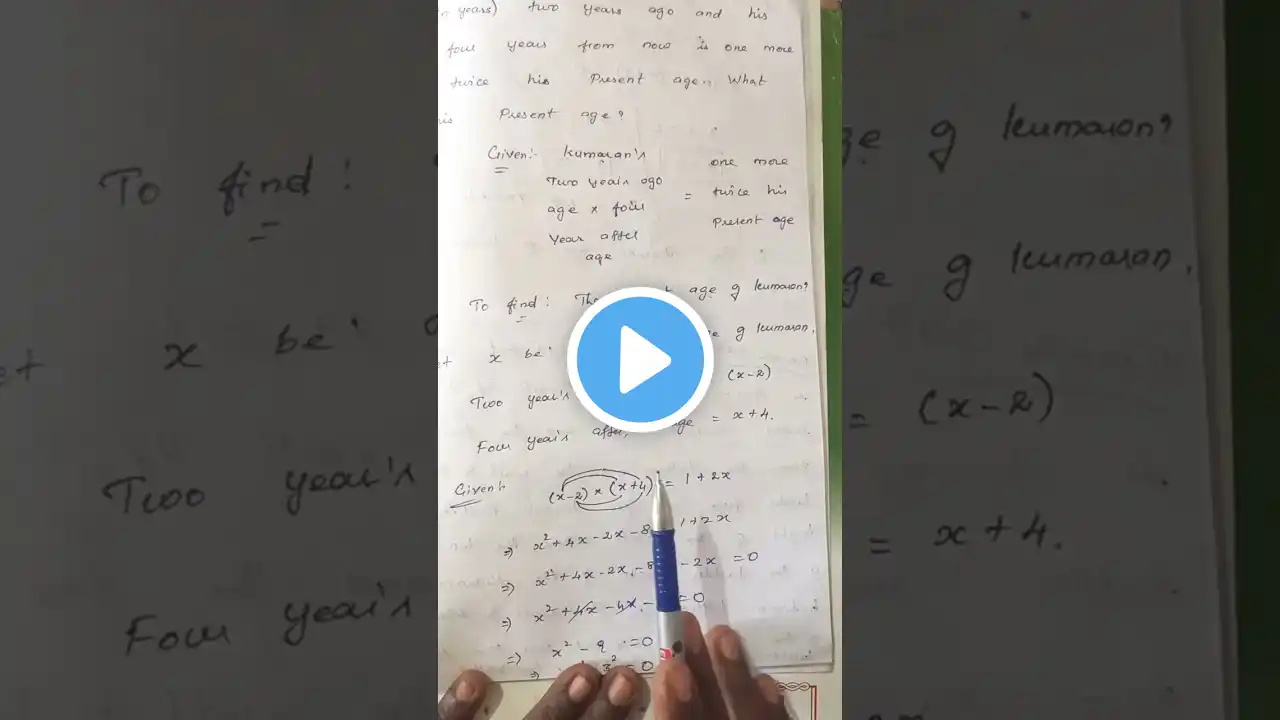 years) two years ago and his
four years from now is one more
twice his Present age. What
Present age?
Given:- Kumaran's
Two years ago
age x four
Year after
age
=
one more
twice his
Present age
To find: age of kumaran?
x be of kumaran.
Two year's (x-2)
Four year's after, age = x+4.
Given:- (x-2) x (x+4) = 1+2x
⇒ x²+4x-2x-8 1+2x
⇒ x²+4x-2x-8 -2x =0
⇒ x²+4x-4x- =0
⇒ x²-9 =0
⇒ 3² =0